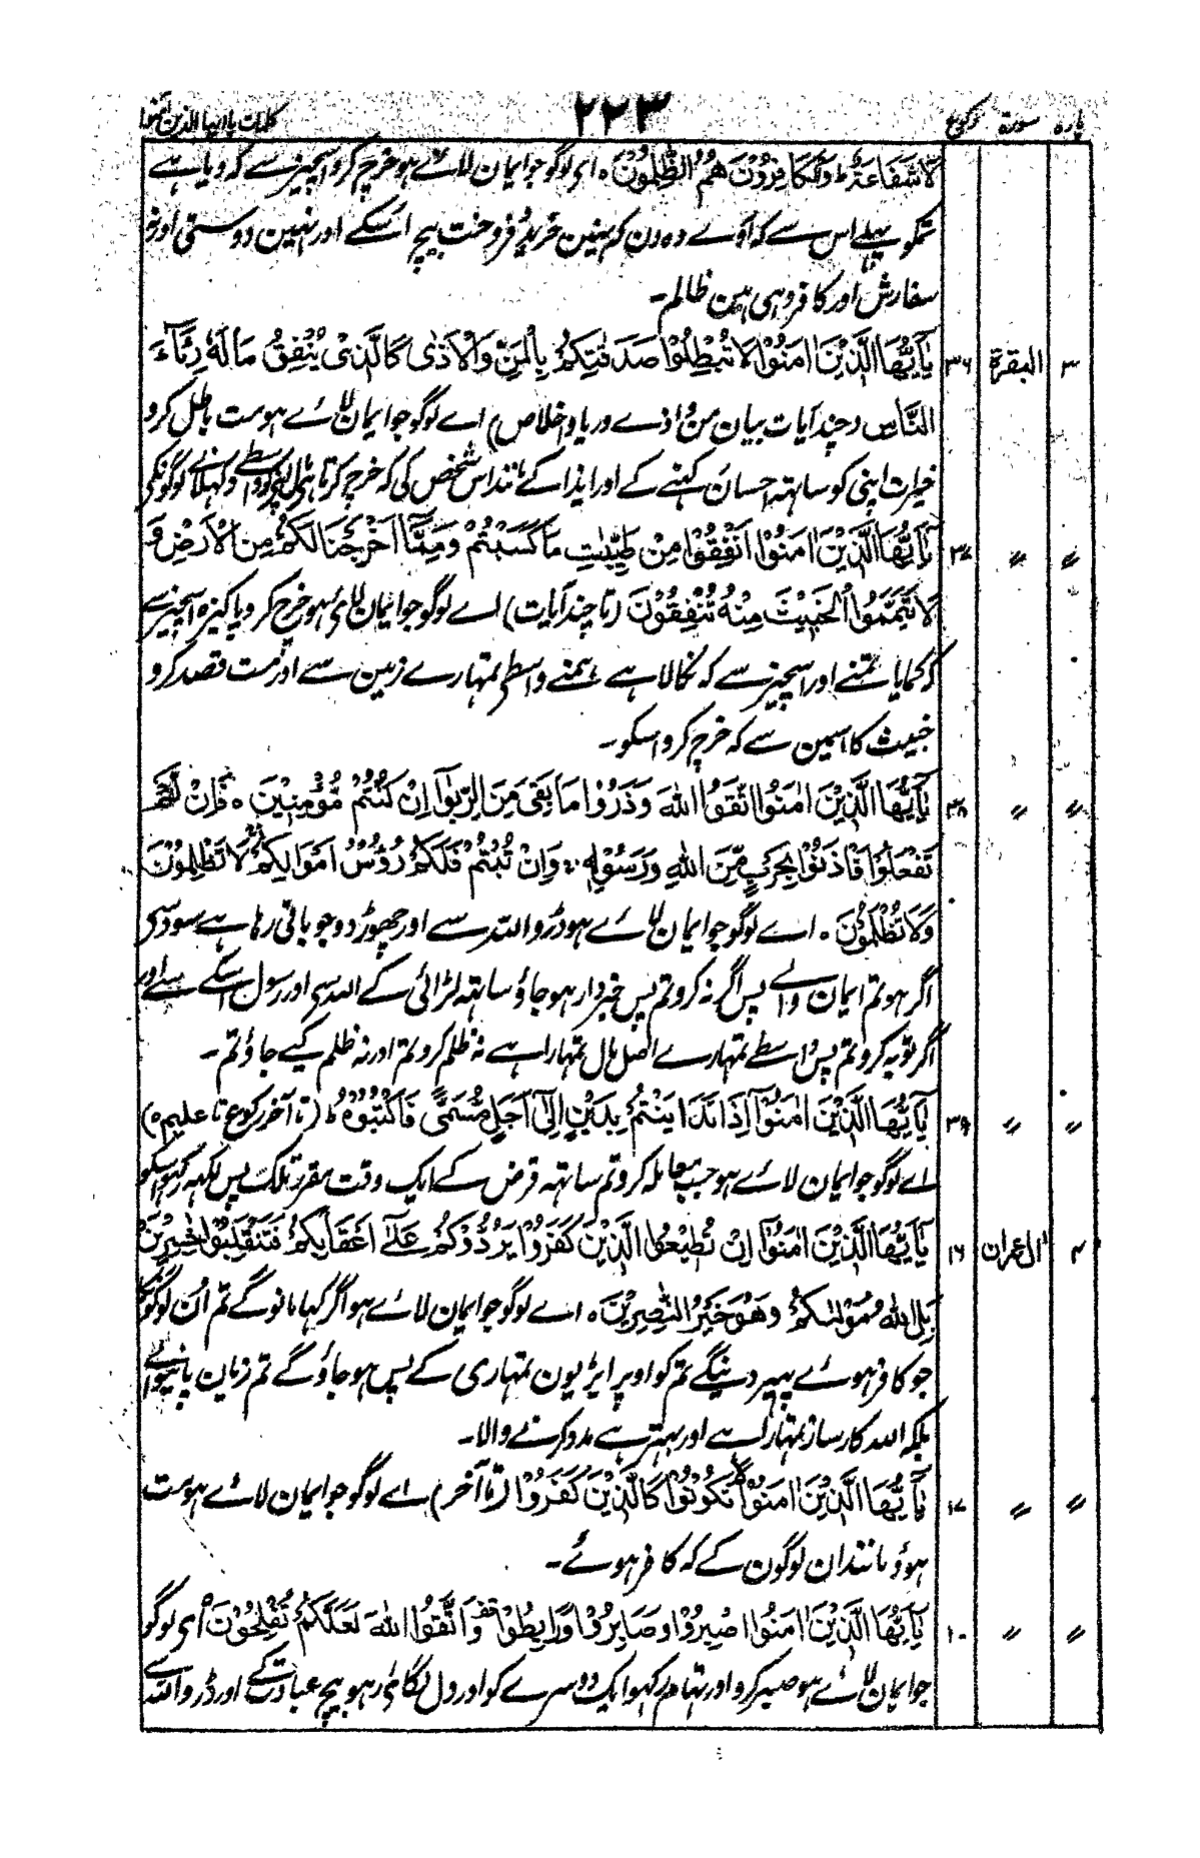 پارہ سورۃ رکوع ۲۲۳ کلمات یا ایہا الذین آمنوا
لَا شَفَاعَةٌ ؕ وَالْكَافِرُوْنَ هُمُ الظّٰلِمُوْنَ ۰ ای لوگو جو ایمان لائے ہو خرچ کرو اسچیز سے کہ دیا ہے
تمکو پہلے اس سے کہ آوے وہ دن کہ نہین خرید و فروخت بیچ اسکے اور نہین دوستی اور نہ
سفارش اور کافر وہی ہین ظالم۔
۳ البقرة ۳۶ يٰۤاَيُّهَا الَّذِيْنَ اٰمَنُوْا لَا تُبْطِلُوْا صَدَقٰتِكُمْ بِالْمَنِّ وَالْاَذٰى كَالَّذِىْ يُنْفِقُ مَالَهٗ رِئَآءَ
النَّاس (چند آیات بیان من و اذے و ریا و اخلاص) اے لوگو جو ایمان لائے ہو مت باطل کرو
خیرات اپنی کو ساتہہ احسان کہنے کے اور ایذا کے مانند اس شخص کی کہ خرچ کرتا ہی مال اپنیکو واسطے دکہلانے لوگونکی
〃 〃 ۳۷ يٰۤاَيُّهَا الَّذِيْنَ اٰمَنُوْۤا اَنْفِقُوْا مِنْ طَيِّبٰتِ مَا كَسَبْتُمْ وَمِمَّاۤ اَخْرَجْنَا لَكُمْ مِنَ الْاَرْضِ وَ
لَا تَيَمَّمُوا الْخَبِيْثَ مِنْهُ تُنْفِقُوْنَ (تا چند آیات) اے لوگو جو ایمان لائی ہو خرچ کرو پاکیزہ اسچیز سے
کہ کمایا تمنے اور اسچیز سے کہ نکالا ہے ہمنے واسطی تمہارے زمین سے اور مت قصد کرو
خبیث کا اسمین سے کہ خرچ کرو اسکو۔
〃 〃 ۳۸ يٰۤاَيُّهَا الَّذِيْنَ اٰمَنُوا اتَّقُوا اللّٰهَ وَذَرُوْا مَا بَقِىَ مِنَ الرِّبٰوٓا اِنْ كُنْتُمْ مُّؤْمِنِيْنَ ۰ فَاِنْ لَّمْ
تَفْعَلُوْا فَاْذَنُوْا بِحَرْبٍ مِّنَ اللّٰهِ وَرَسُوْلِهٖ ۚ وَاِنْ تُبْتُمْ فَلَكُمْ رُءُوْسُ اَمْوَالِكُمْ لَا تَظْلِمُوْنَ
وَلَا تُظْلَمُوْنَ ۰ اے لوگو جو ایمان لائے ہو ڈرو اللہ سے اور چھوڑ دو جو باقی رہا ہے سود سی
اگر ہو تم ایمان والے پس اگر نہ کرو تم پس خبردار ہو جاؤ ساتہہ لڑائی کے اللہ سی اور رسول اسکے سے اور
اگر توبہ کرو تم پس واسطے تمہارے اصل مال تمہارا ہے نہ ظلم کرو تم اور نہ ظلم کیے جاؤ تم۔
〃 〃 ۳۹ يٰۤاَيُّهَا الَّذِيْنَ اٰمَنُوْۤا اِذَا تَدَايَنْتُمْ بِدَيْنٍ اِلٰٓى اَجَلٍ مُّسَمًّى فَاكْتُبُوْهُ ؕ (تا آخر رکوع تا علیم ۰)
اے لوگو جو ایمان لائے ہو جب معاملہ کرو تم ساتہہ قرض کے ایک وقت مقرر تلک پس لکہہ رکہو اسکو
۴ اٰل عمران ۱۶ يٰۤاَيُّهَا الَّذِيْنَ اٰمَنُوْۤا اِنْ تُطِيْعُوا الَّذِيْنَ كَفَرُوْا يَرُدُّوْكُمْ عَلٰٓى اَعْقَابِكُمْ فَتَنْقَلِبُوْا خٰسِرِيْنَ
بَلِ اللّٰهُ مَوْلٰىكُمْ وَهُوَ خَيْرُ النّٰصِرِيْنَ ۰ اے لوگو جو ایمان لائے ہو اگر کہا مانو گے تم ان لوگونکا
جو کافر ہوئے پہیر دینگے تمکو اوپر ایڑیون تمہاری کے پس ہو جاؤ گے تم زیان پانیوالے
بلکہ اللہ کارساز تمہارا ہے اور بہتر ہے مدد کرنے والا۔
〃 〃 ۱۷ يٰۤاَيُّهَا الَّذِيْنَ اٰمَنُوْا لَا تَكُوْنُوْا كَالَّذِيْنَ كَفَرُوْا (تا آخر) اے لوگو جو ایمان لائے ہو مت
ہوؤ مانند ان لوگون کے کہ کافر ہوئے۔
〃 〃 ۱۰ يٰۤاَيُّهَا الَّذِيْنَ اٰمَنُوا اصْبِرُوْا وَصَابِرُوْا وَرَابِطُوْا وَاتَّقُوا اللّٰهَ لَعَلَّكُمْ تُفْلِحُوْنَ ای لوگو
جو ایمان لائے ہو صبر کرو اور تہام رکہو ایک دوسرے کو اور دل لگائی رہو بیچ عبادت کے اور ڈرو اللہ سے